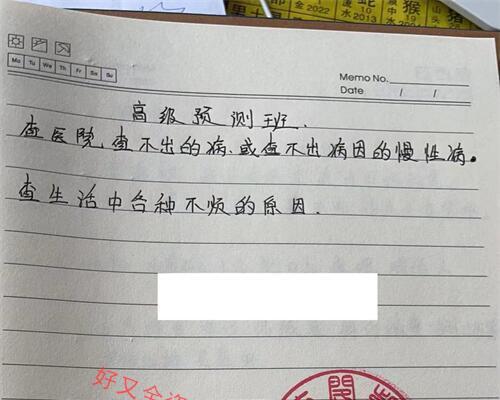 猴
金2022
水2013
Mo Tu We Th Fr Sa Su
Memo No.
Date / /
高级预测班.
查医院,查不出的病.或查不出病因的慢性病。
查生活中各种不烦的原因.
好又全